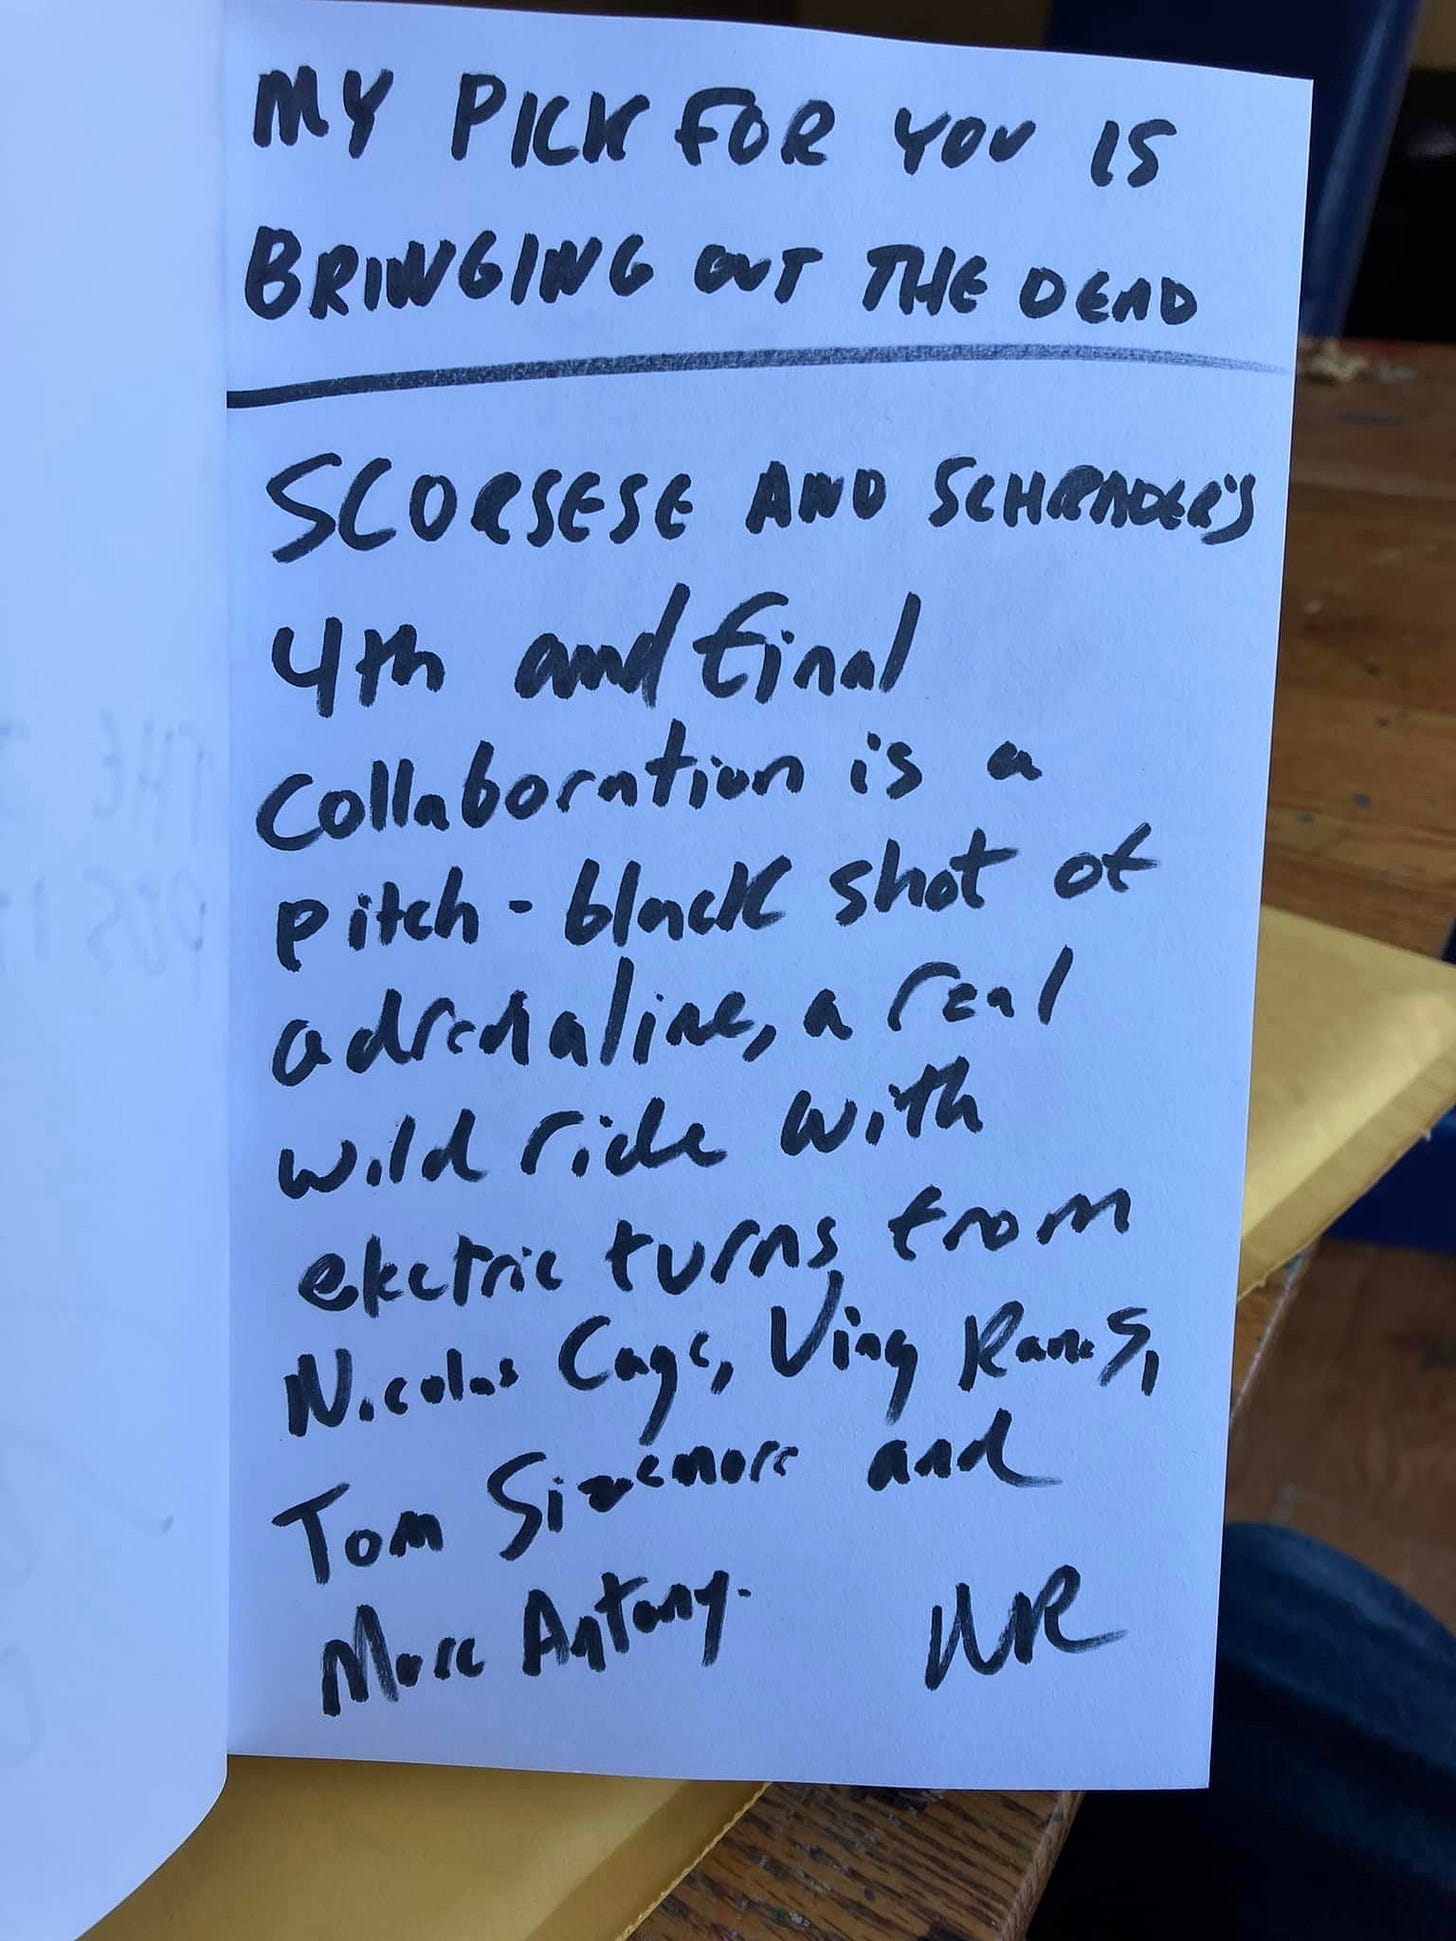 MY PICK FOR YOU IS
BRINGING OUT THE DEAD
SCORSESE AND SCHRADER'S
4th and final
collaboration is a
pitch-black shot of
adrenaline, a real
wild ride with
electric turns from
Nicolas Cage, Ving Rames,
Tom Sizemore and
Marc Antony.
NR
THE